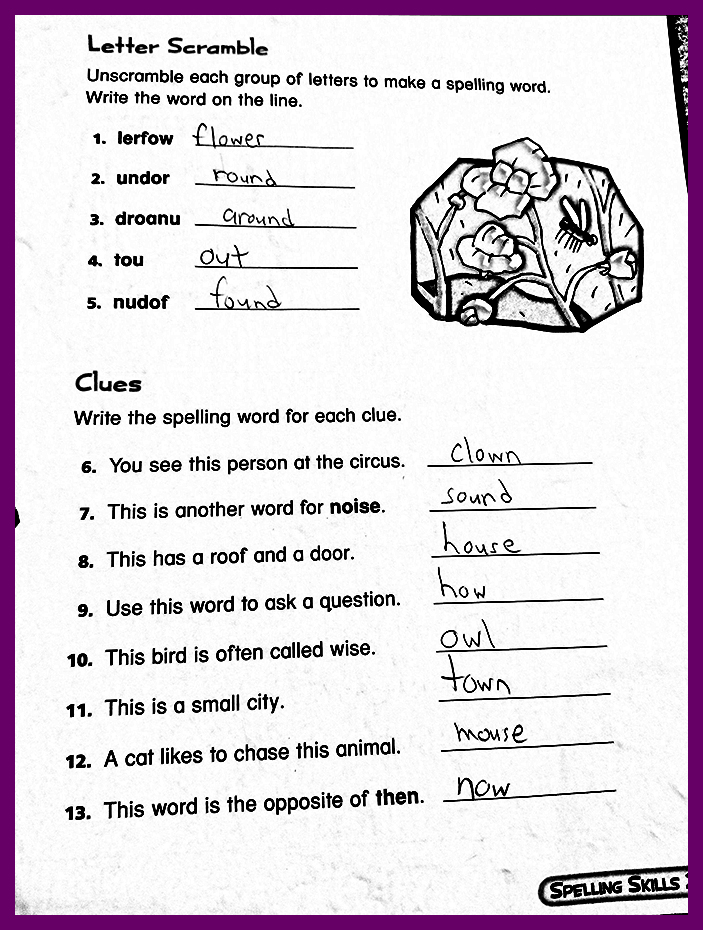 Letter Scramble
Unscramble each group of letters to make a spelling word.
Write the word on the line.
1. lerfow flower
2. undor round
3. droanu around
4. tou out
5. nudof found
Clues
Write the spelling word for each clue.
6. You see this person at the circus. clown
7. This is another word for noise. sound
8. This has a roof and a door. house
9. Use this word to ask a question. how
10. This bird is often called wise. owl
11. This is a small city. town
12. A cat likes to chase this animal. mouse
13. This word is the opposite of then. now
SPELLING SKILLS